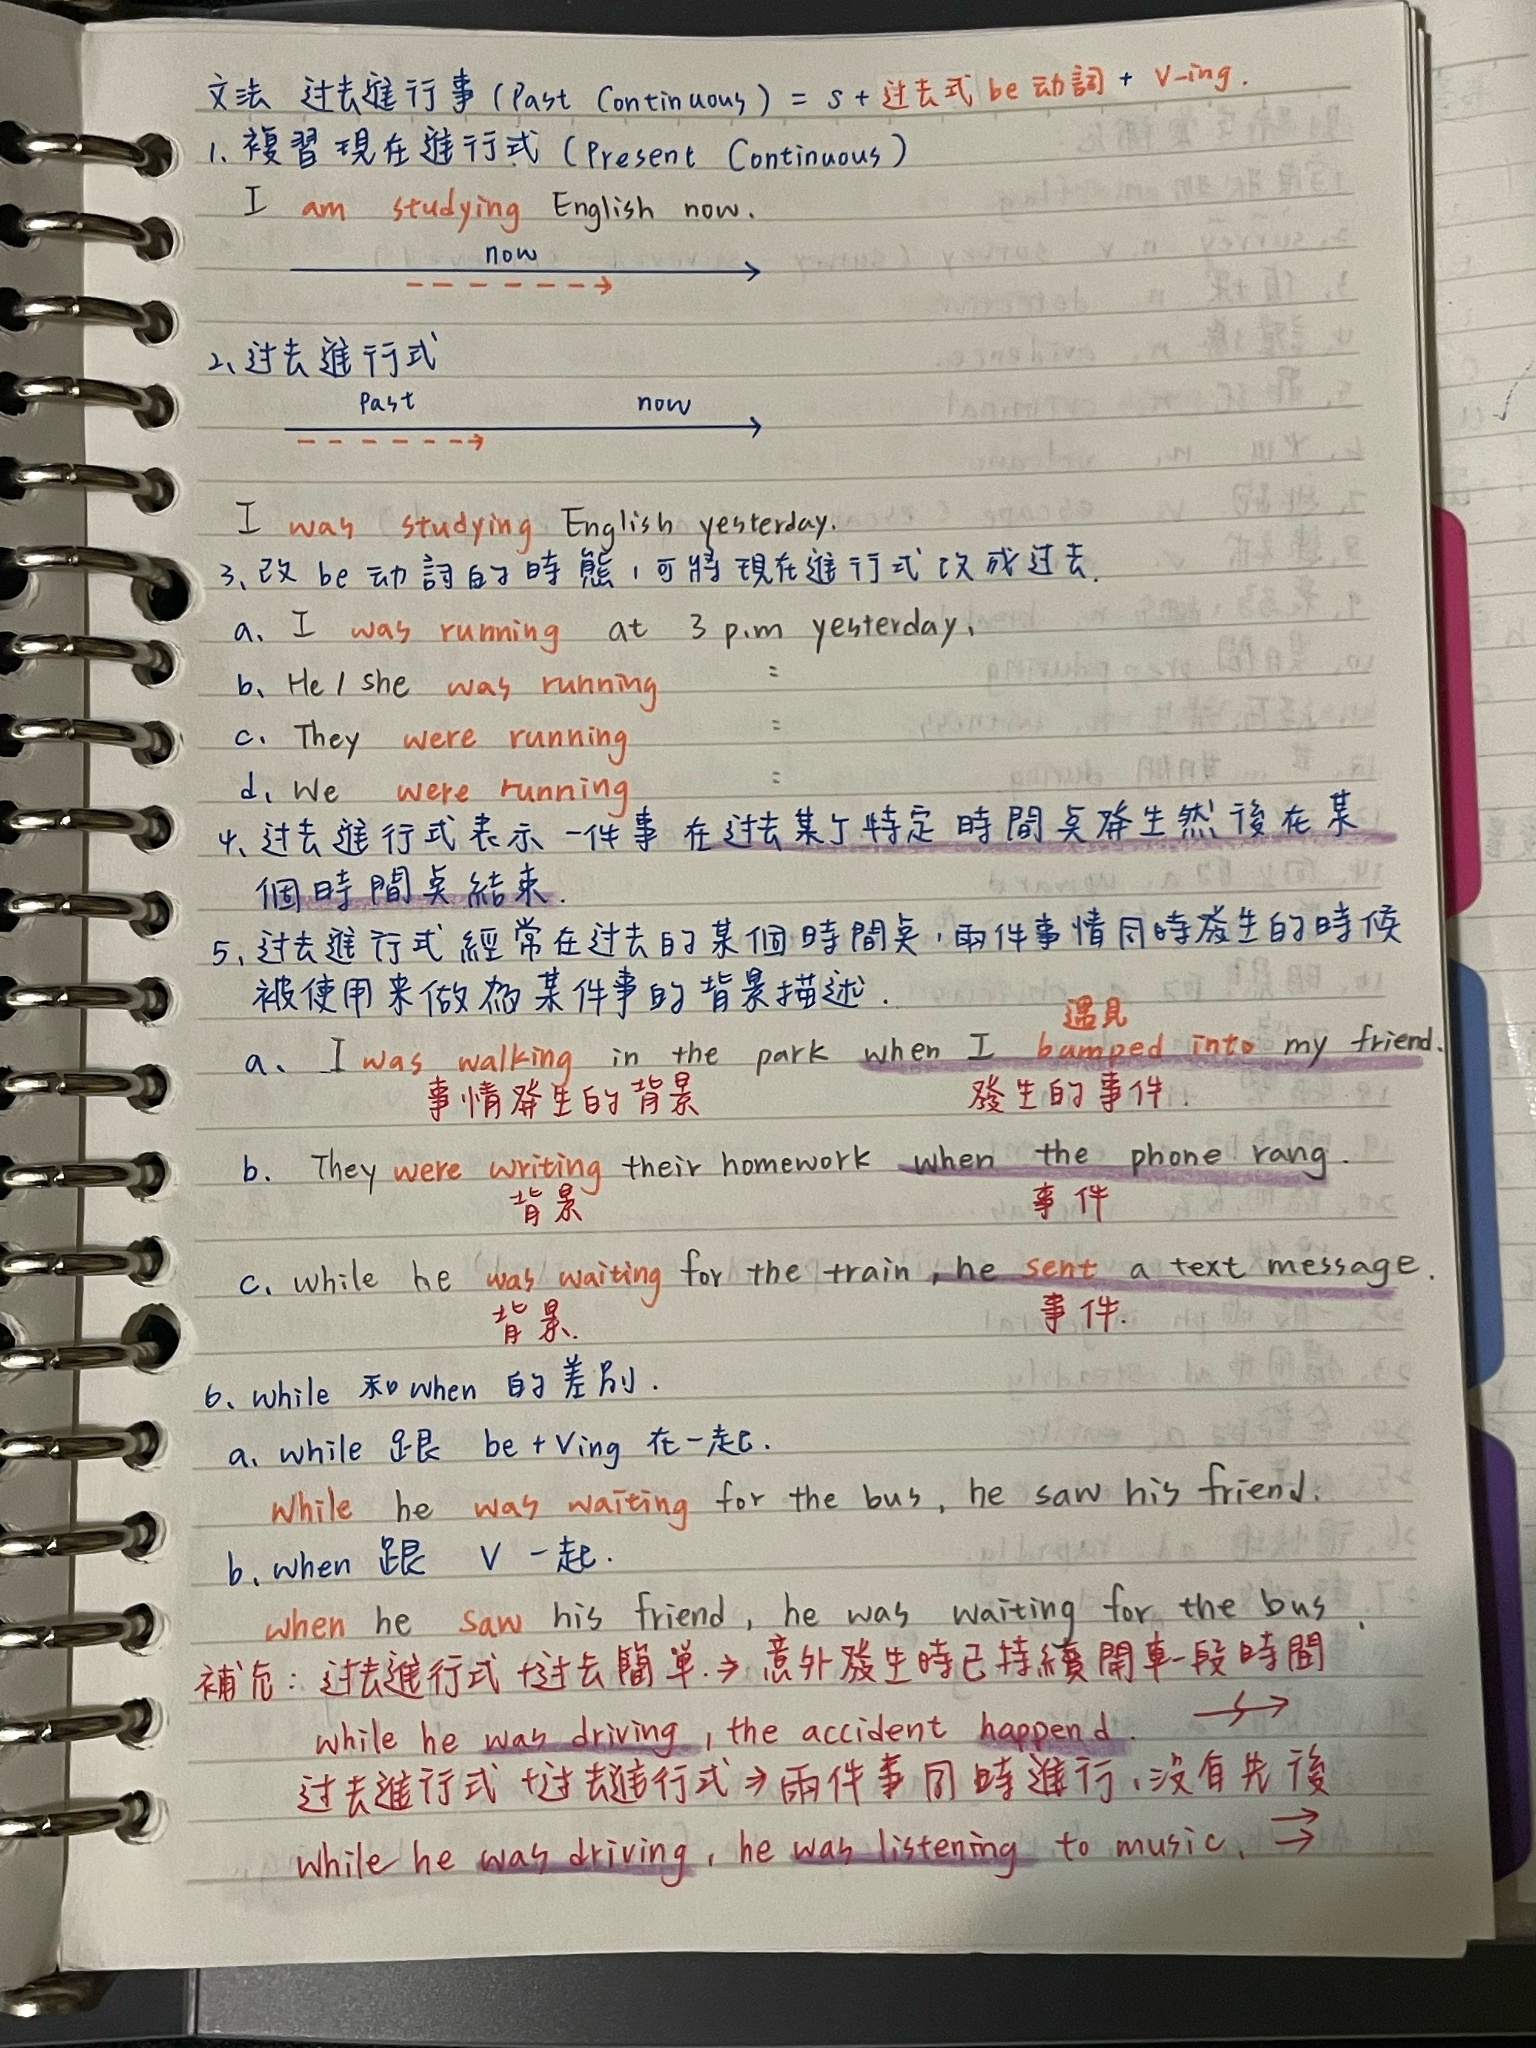 文法 过去進行事 (Past Continuous) = s + 过去式 be 动詞 + V-ing.
1. 複習現在進行式 (Present Continuous)
I am studying English now.
now
2. 过去進行式
Past now
I was studying English yesterday.
3. 改 be 动詞的時態,可將現在進行式改成过去.
a. I was running at 3 p.m yesterday.
b. He / she was running :
c. They were running :
d. We were running :
4. 过去進行式表示一件事在过去某个特定時間奌發生然後在某
個時間奌結束.
5. 过去進行式經常在过去的某個時間奌,兩件事情同時發生的時候
被使用来做為某件事的背景描述.
遇見
a. I was walking in the park when I bumped into my friend.
事情發生的背景 發生的事件.
b. They were writing their homework when the phone rang.
背景 事件
c. while he was waiting for the train, he sent a text message.
背景. 事件.
6. while 和 when 的差別.
a. while 跟 be + Ving 在一起.
While he was waiting for the bus, he saw his friend.
b. when 跟 V 一起.
when he saw his friend, he was waiting for the bus.
補充: 过去進行式 + 过去簡單 → 意外發生時已持續開車一段時間
while he was driving, the accident happend.
过去進行式 + 过去進行式 → 兩件事同時進行,没有先後
while he was driving, he was listening to music.